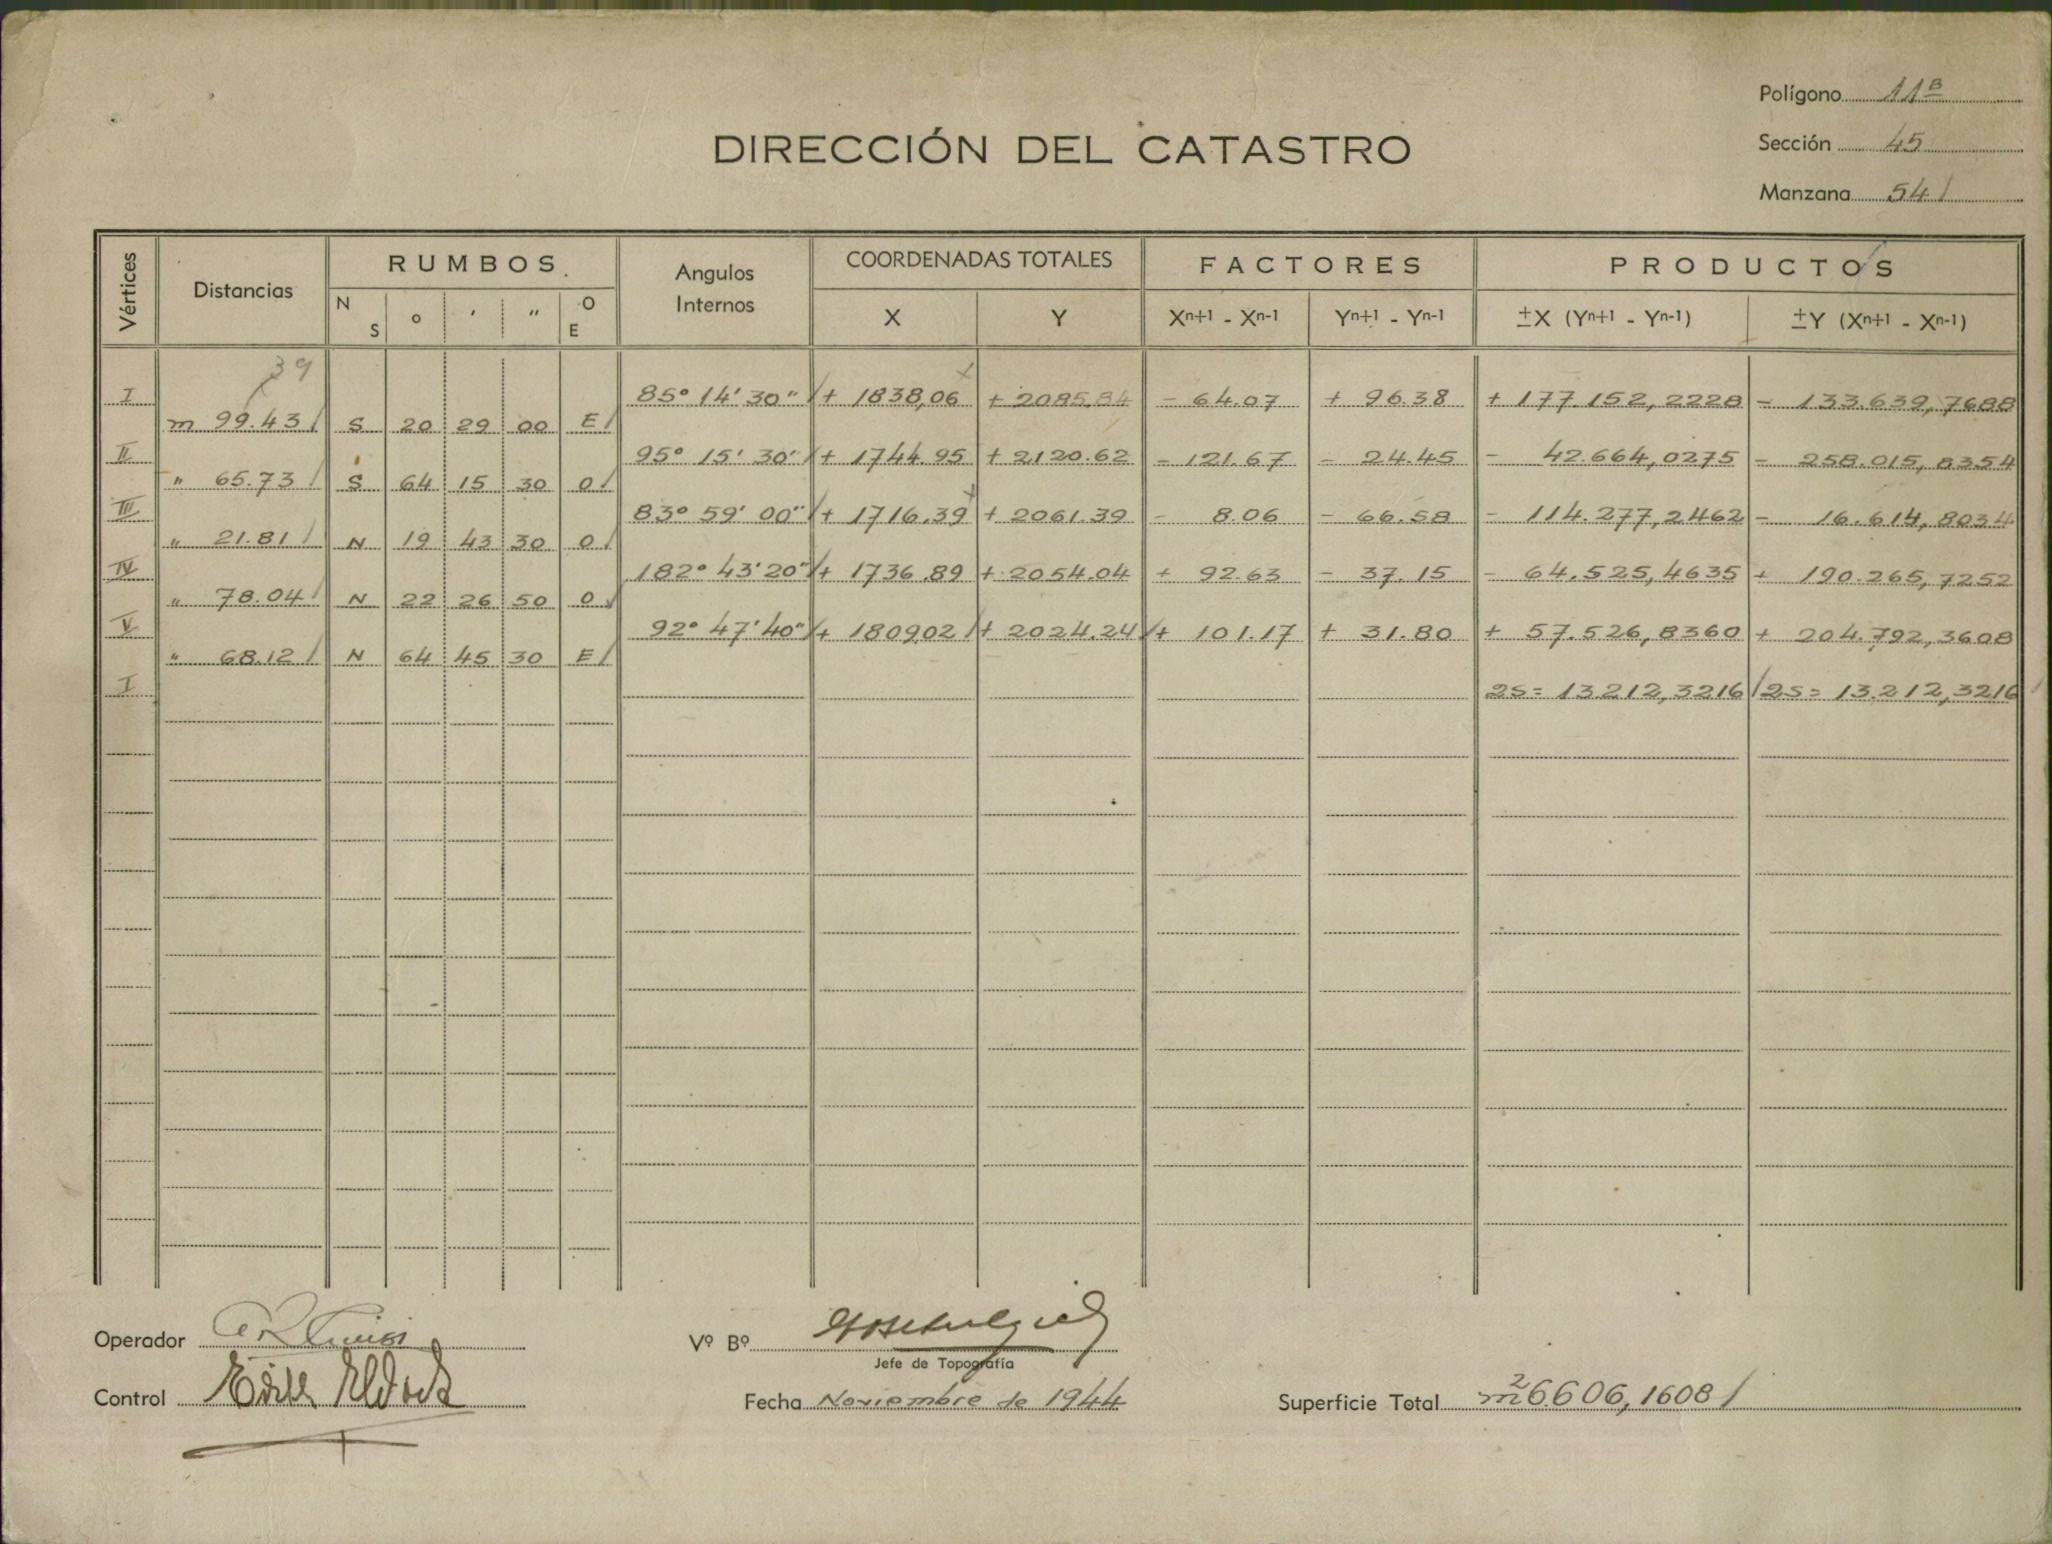 Polígono 11B
DIRECCIÓN DEL CATASTRO
Sección 45
Manzana 54
Vértices
Distancias
RUMBOS.
N S ° ' " O E
Angulos Internos
COORDENADAS TOTALES
X Y
FACTORES
Xn+1 - Xn-1 Yn+1 - Yn-1
PRODUCTOS
±X (Yn+1 - Yn-1) ±Y (Xn+1 - Xn-1)
39
I 85° 14' 30" + 1838,06 + 2085.84 - 64.07 + 96.38 + 177.152,2228 - 133.639,7688
m 99.43 S 20 29 00 E
II 95° 15' 30" + 1744.95 + 2120.62 - 121.67 - 24.45 - 42.664,0275 - 258.015,8354
" 65.73 S 64 15 30 O
III 83° 59' 00" + 1716.39 + 2061.39 - 8.06 - 66.58 - 114.277,2462 - 16.614,8034
" 21.81 N 19 43 30 O
IV 182° 43' 20" + 1736.89 + 2054.04 + 92.63 - 37.15 - 64.525,4635 + 190.265,7252
" 78.04 N 22 26 50 O
V 92° 47' 40" + 180902 + 2024.24 + 101.17 + 31.80 + 57.526,8360 + 204.792,3608
" 68.12 N 64 45 30 E
I 2S= 13.212,3216 2S= 13.212,3216
Operador
Vº Bº
Jefe de Topografía
Control
Fecha Noviembre de 1944
Superficie Total m2 6.606,1608